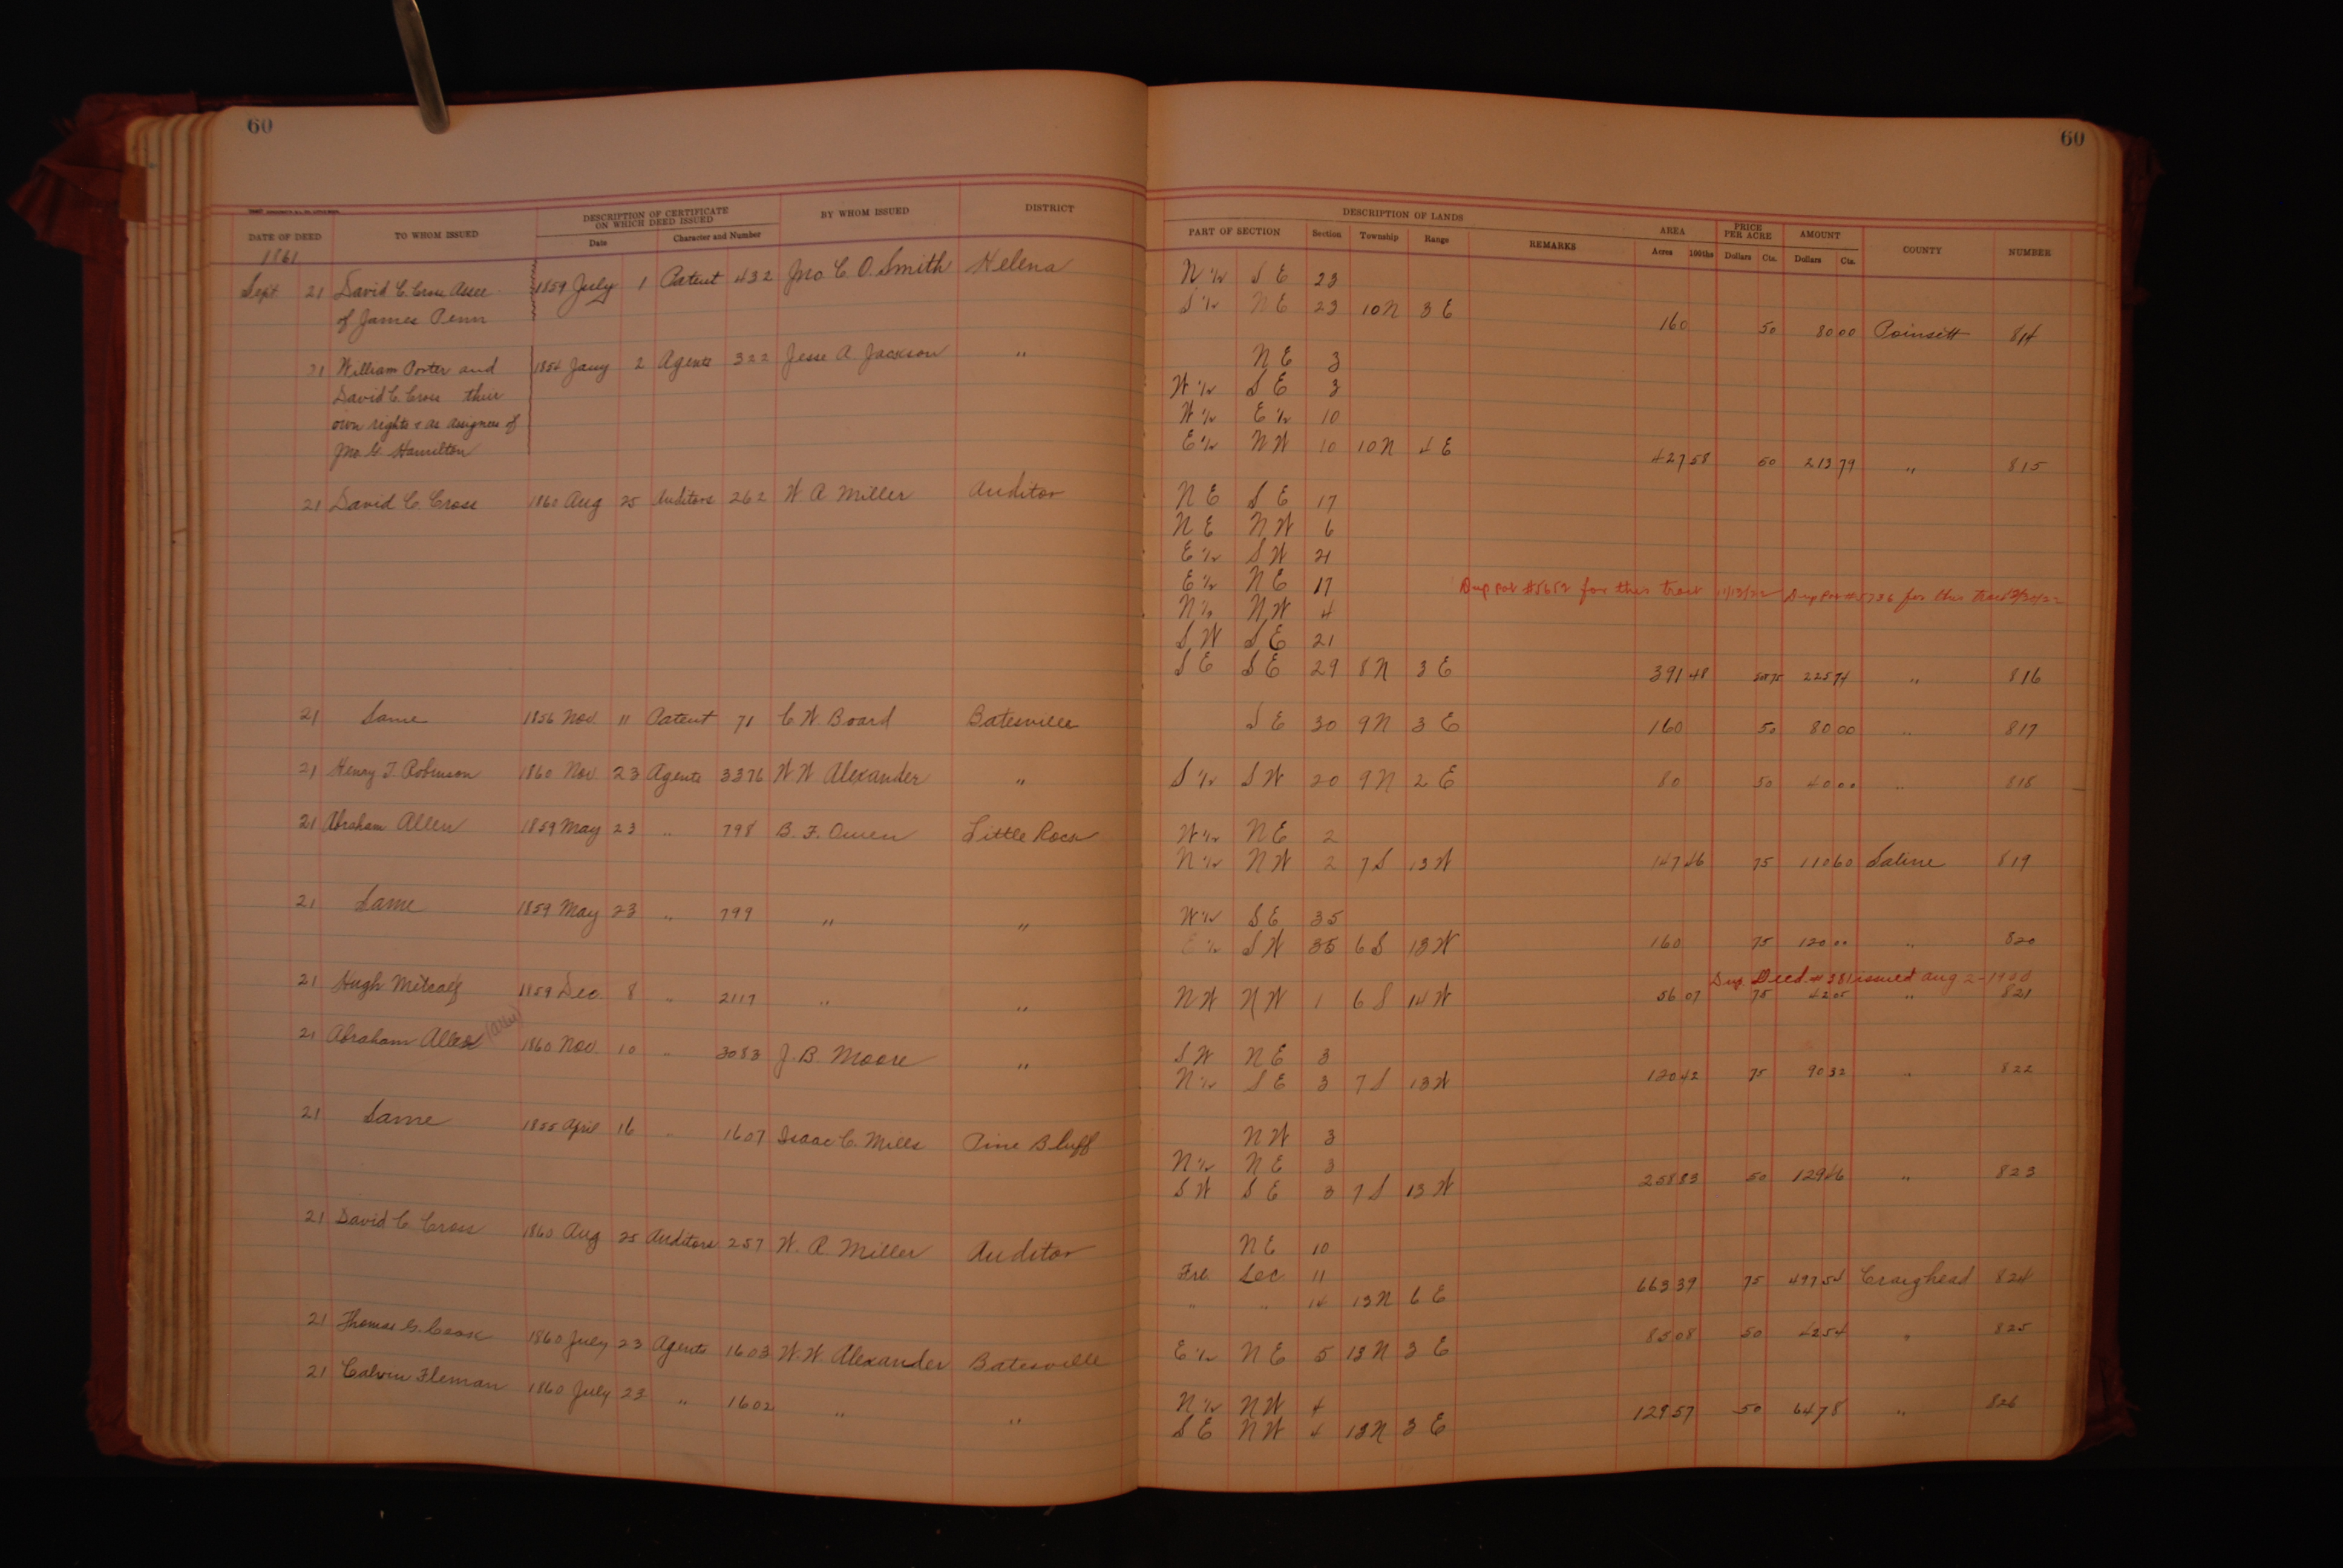 60
60
DATE OF DEED TO WHOM ISSUED DESCRIPTION OF CERTIFICATE ON WHICH DEED ISSUED BY WHOM ISSUED DISTRICT DESCRIPTION OF LANDS AREA PRICE PER ACRE AMOUNT COUNTY NUMBER
Date Character and Number PART OF SECTION Section Township Range REMARKS Acres 100ths Dollars Cts. Dollars Cts.
1861
Sept 21 David C. Cross Assee 1859 July 1 Patent 432 Jno C. O. Smith Helena N 1/2 S E 23
of James Penn S 1/2 N E 23 10 N 3 E 160 50 80 00 Poinsett 814
21 William Porter and 1854 Jany 2 Agents 322 Jesse A. Jackson " N E 3
David C. Cross their W 1/2 S E 3
own rights & as assignees of W 1/2 E 1/2 10
Jno G. Hamilton E 1/2 N W 10 10 N 4 E 427 58 50 213 79 " 815
21 David C. Cross 1860 Aug 25 Auditors 262 W R Miller Auditor N E S E 17
N E N W 6
E 1/2 S W 21
E 1/2 N E 17 Dup pat #5652 for this tract 11/13/22 Dup Pat # 5736 for this tract
N 1/2 N W 4
S W S E 21
S E S E 29 8 N 3 E 391 48 50 75 225 74 " 816
21 Same 1856 Nov. 11 Patent 71 C W Board Batesville S E 30 9 N 3 E 160 50 80 00 " 817
21 Henry T. Robinson 1860 Nov. 23 Agents 3376 W W Alexander " S 1/2 S W 20 9 N 2 E 80 50 40 00 " 818
21 Abraham Allen 1859 May 23 " 798 B. F. Owen Little Rock W 1/2 N E 2
N 1/2 N W 2 7 S 13 W 147 46 75 110 60 Saline 819
21 Same 1859 May 23 " 799 " " W 1/2 S E 35
E 1/2 S W 35 6 S 13 W 160 75 120 00 " 820
Dup. Deed # 381 issued Aug 2-1900
21 Hugh Metcalf 1859 Dec. 8 " 2117 " " N W N W 1 6 S 14 W 56 07 75 42 05 " 821
(Allen)
21 Abraham Allen 1860 Nov. 10 " 3083 J. B. Moore " S W N E 3
N 1/2 S E 3 7 S 13 W 120 42 75 90 32 " 822
21 Same 1855 April 16 " 1607 Isaac C. Mills Pine Bluff N W 3
N 1/2 N E 3
S W S E 3 7 S 13 W 258 83 50 129 46 " 823
21 David C. Cross 1860 Aug 25 Auditors 257 W. R. Miller Auditor N E 10
Frl. Sec 11
" " 14 13 N 6 E 663 39 75 497 54 Craighead 824
21 Thomas G. 1860 July 23 Agents 1603 W. W. Alexander Batesville E 1/2 N E 5 13 N 3 E 85 08 50 42 54 " 825
21 Calvin Fleman 1860 July 23 " 1602 " " N 1/2 N W 4
S E N W 4 13 N 3 E 129 57 50 64 78 " 826